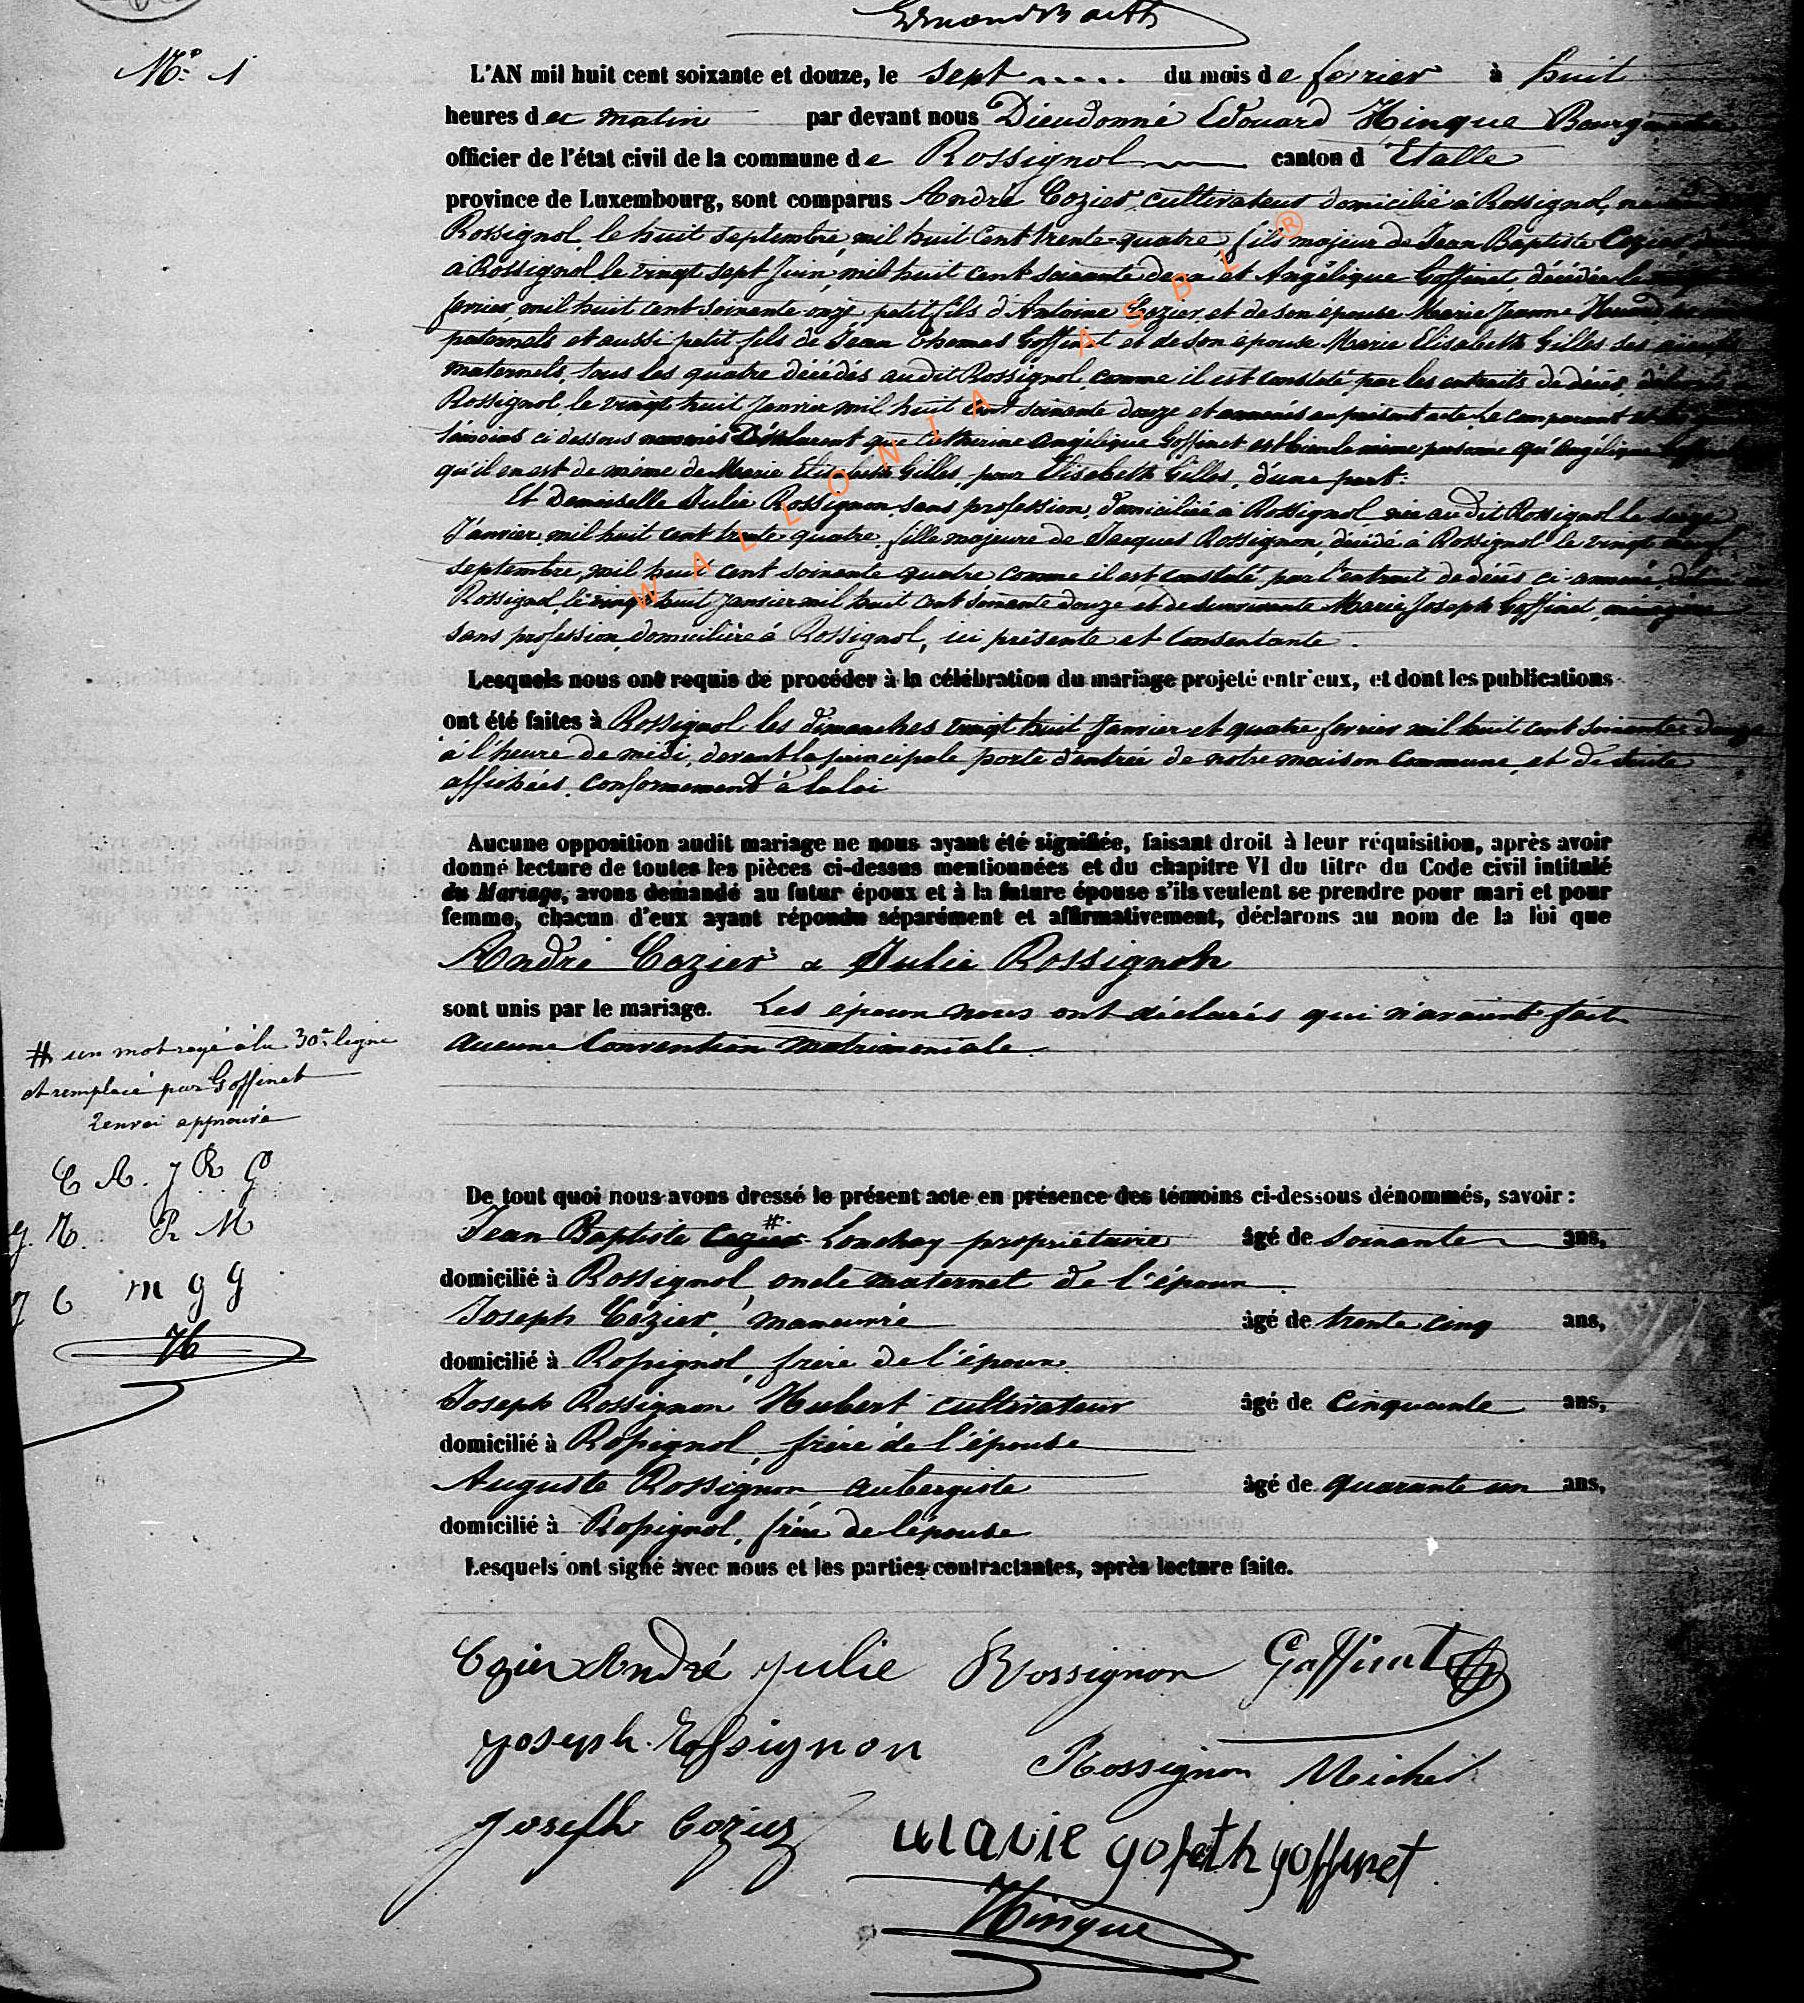 Edmond Barth
N° 1
L'AN mil huit cent soixante et douze, le sept du mois de fevrier à huit
heures du matin par devant nous Dieudonné Edouard Hinque
officier de l'état civil de la commune de Rossignol canton d'Etalle
province de Luxembourg, sont comparus André Cozier cultivateur domicilié à Rossignol,
Rossignol, le huit septembre, mil huit cent trente-quatre, fils majeur de Jean Baptiste Cozier
à Rossignol le vingt sept Juin, mil huit cent soixante deux et Angélique Goffinet, décédée le
fevrier, mil huit cent soixante onze petit fils d'Antoine Cozier, et de son épouse Marie Jeanne
paternels et aussi petit fils de Jean Thomas Goffinet et de son épouse Marie Elisabeth Gilles ses aieuls
maternels, tous les quatre décédés audit Rossignol, comme il est constaté par les extraits de décès délivrés à
Rossignol, le vingt huit Janvier mil huit cent soixante douze et annexés au présent acte. Le comparant et les quatre
témoins ci dessous nommés Déclarent que Catherine Angélique Goffinet est bien la même personne qu'Angélique Goffinet
qu'il en est de même de Marie Elisabeth Gilles, pour Elisabeth Gilles, d'une part:
Et Demoiselle Julie Rossignon, sans profession, domiciliée à Rossignol née audit Rossignol le seize
Janvier, mil huit cent trente quatre, fille majeure de Jacques Rossignon, décédé à Rossignol le vingt
septembre, mil huit cent soixante quatre comme il est constaté par l'extrait de décès ci-annexé, délivré à
Rossignol, le vingt huit Janvier mil huit cent soixante douze et de survivante Marie Joseph Goffinet, ménagère
sans profession, domiciliée à Rossignol, ici présente et Consentante.
Lesquels nous ont requis de procéder à la célébration du mariage projeté entr'eux, et dont les publications
ont été faites à Rossignol les dimanches vingt huit Janvier et quatre fevrier mil huit cent soixante douze
à l'heure de midi, devant la principale porte d'entrée de notre maison Commune, et de suite
affichées, conformement à la loi
Aucune opposition audit mariage ne nous ayant été signifiée, faisant droit à leur réquisition, après avoir
donné lecture de toutes les pièces ci-dessus mentionnées et du chapitre VI du titre du Code civil intitulé
du Mariage, avons demandé au futur époux et à la future épouse s'ils veulent se prendre pour mari et pour
femme, chacun d'eux ayant répondu séparément et affirmativement, déclarons au nom de la loi que
André Cozier & Julie Rossignon
sont unis par le mariage. Les époux nous ont déclarés qui n'avaient fait
aucune Convention matrimoniale.
# un mot rayé à la 30e ligne
et remplacé par Goffinet
renvoi approuvé
C A. J R G
J. R. R M
J C m g g
H
De tout quoi nous avons dressé le présent acte en présence des témoins ci-dessous dénommés, savoir :
Jean Baptiste Cozier # Lonchay propriétaire âgé de soixante ans,
domicilié à Rossignol, oncle maternel de l'époux
Joseph Cozier, manœuvre âgé de trente cinq ans,
domicilié à Rossignol, frère de l'époux
Joseph Rossignon Hubert cultivateur âgé de Cinquante ans,
domicilié à Rossignol, frère de l'épouse
Auguste Rossignon aubergiste âgé de quarante un ans,
domicilié à Rossignol, frère de l'épouse
Lesquels ont signé avec nous et les parties contractantes, après lecture faite.
Cozier André Julie Rossignon Goffinet
Joseph Rossignon Rossignon Michel
Joseph Cozier marie goseth goffinet
Hinque
WALLONIA ASBL ®